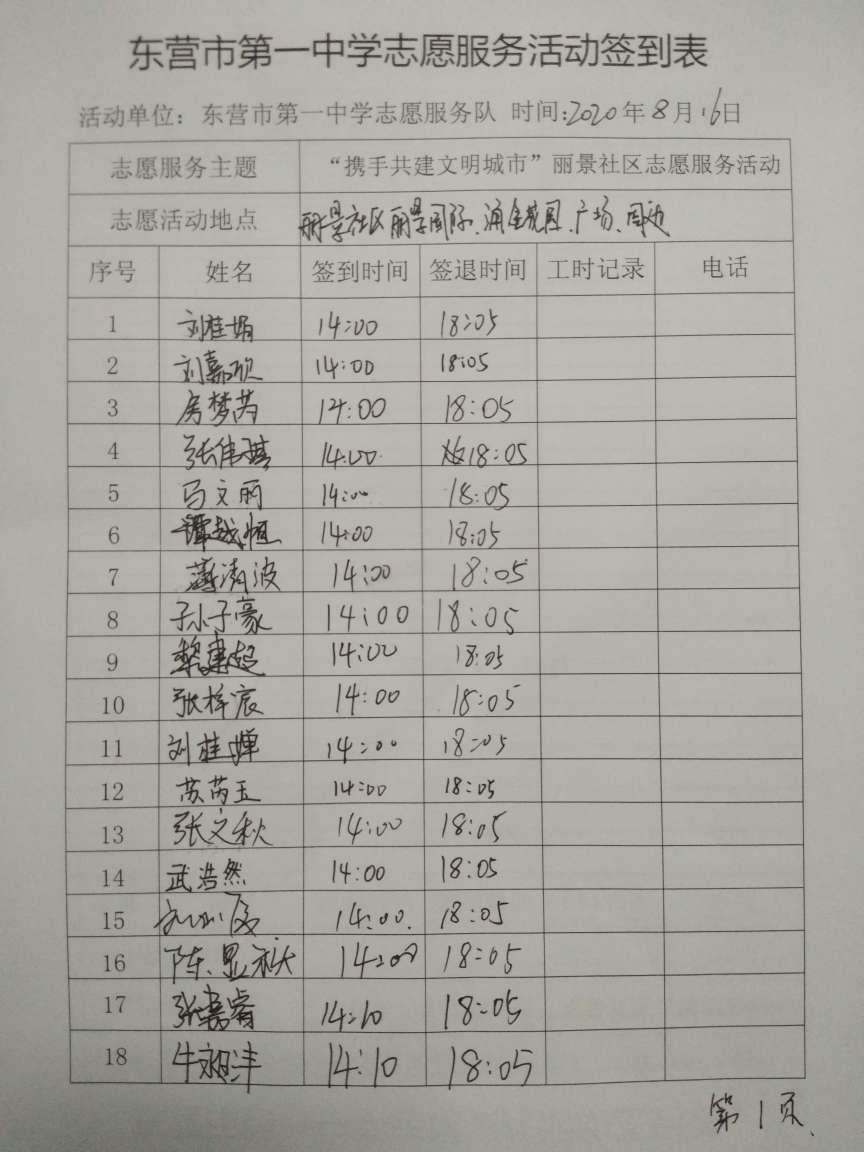 东营市第一中学志愿服务活动签到表
活动单位：东营市第一中学志愿服务队 时间:2020年8月16日
志愿服务主题 “携手共建文明城市”丽景社区志愿服务活动
志愿活动地点 丽景社区丽景国际、涌金花园、广场、周边
序号 姓名 签到时间 签退时间 工时记录 电话
1 刘桂娟 14:00 18:05
2 刘嘉欣 14:00 18:05
3 房梦芮 14:00 18:05
4 张伟琪 14:00 18:05
5 马文丽 14:00 18:05
6 谭越恒 14:00 18:05
7 薄清波 14:00 18:05
8 孙子豪 14:00 18:05
9 黎建超 14:00 18:05
10 张梓宸 14:00 18:05
11 刘桂婵 14:00 18:05
12 苏芮玉 14:00 18:05
13 张文秋 14:00 18:05
14 武浩然 14:00 18:05
15 14:00 18:05
16 陈显 14:00 18:05
17 张嘉睿 14:10 18:05
18 牛沣 14:10 18:05
第1页